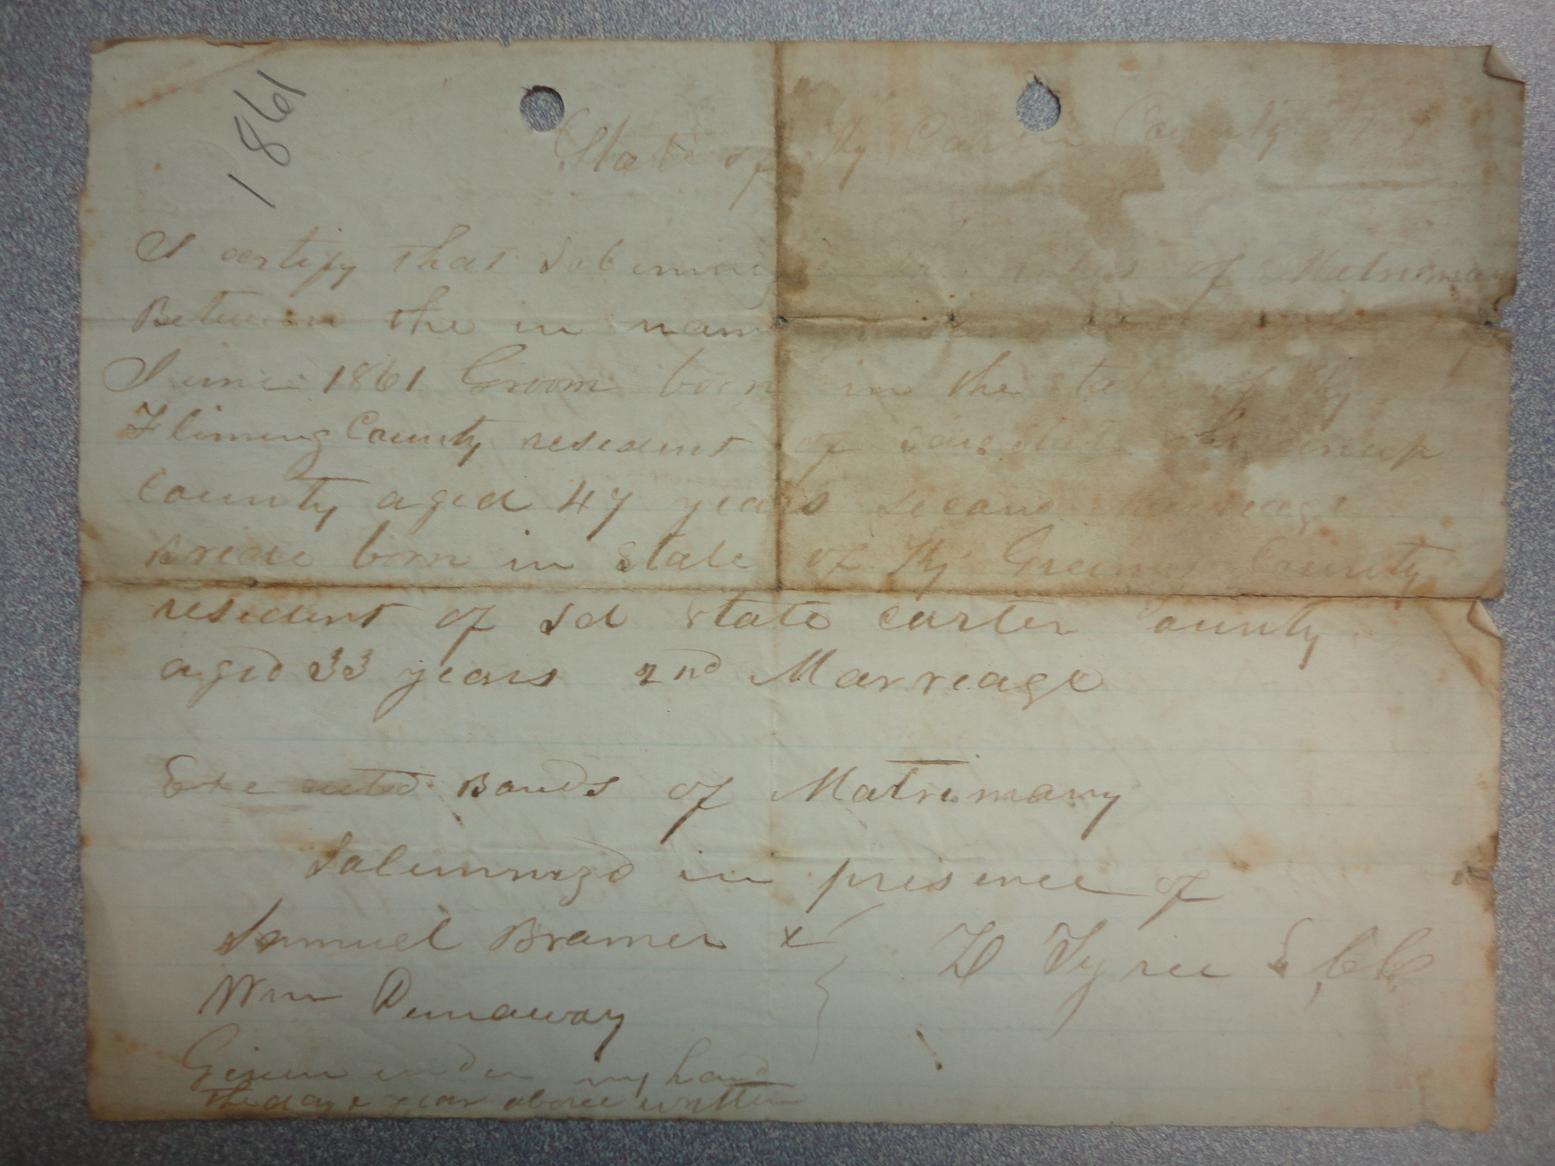 1861
State of Ky Carter County
I certify that Solemniz rites of Matrimony
Between the in nam
June 1861 Groom born in the state of Ky
Fliming County resident of said state
County aged 47 years second Marreage
Breide born in State of Ky Greenup County
resident of sd state carter County
aged 33 years 2nd Marreage
Executed Bands of Matrimany
Solemnizd in presence of
Samuel Bramer x
Z Tyree
Wm Dunaway
Given under my hand
the day & year above written